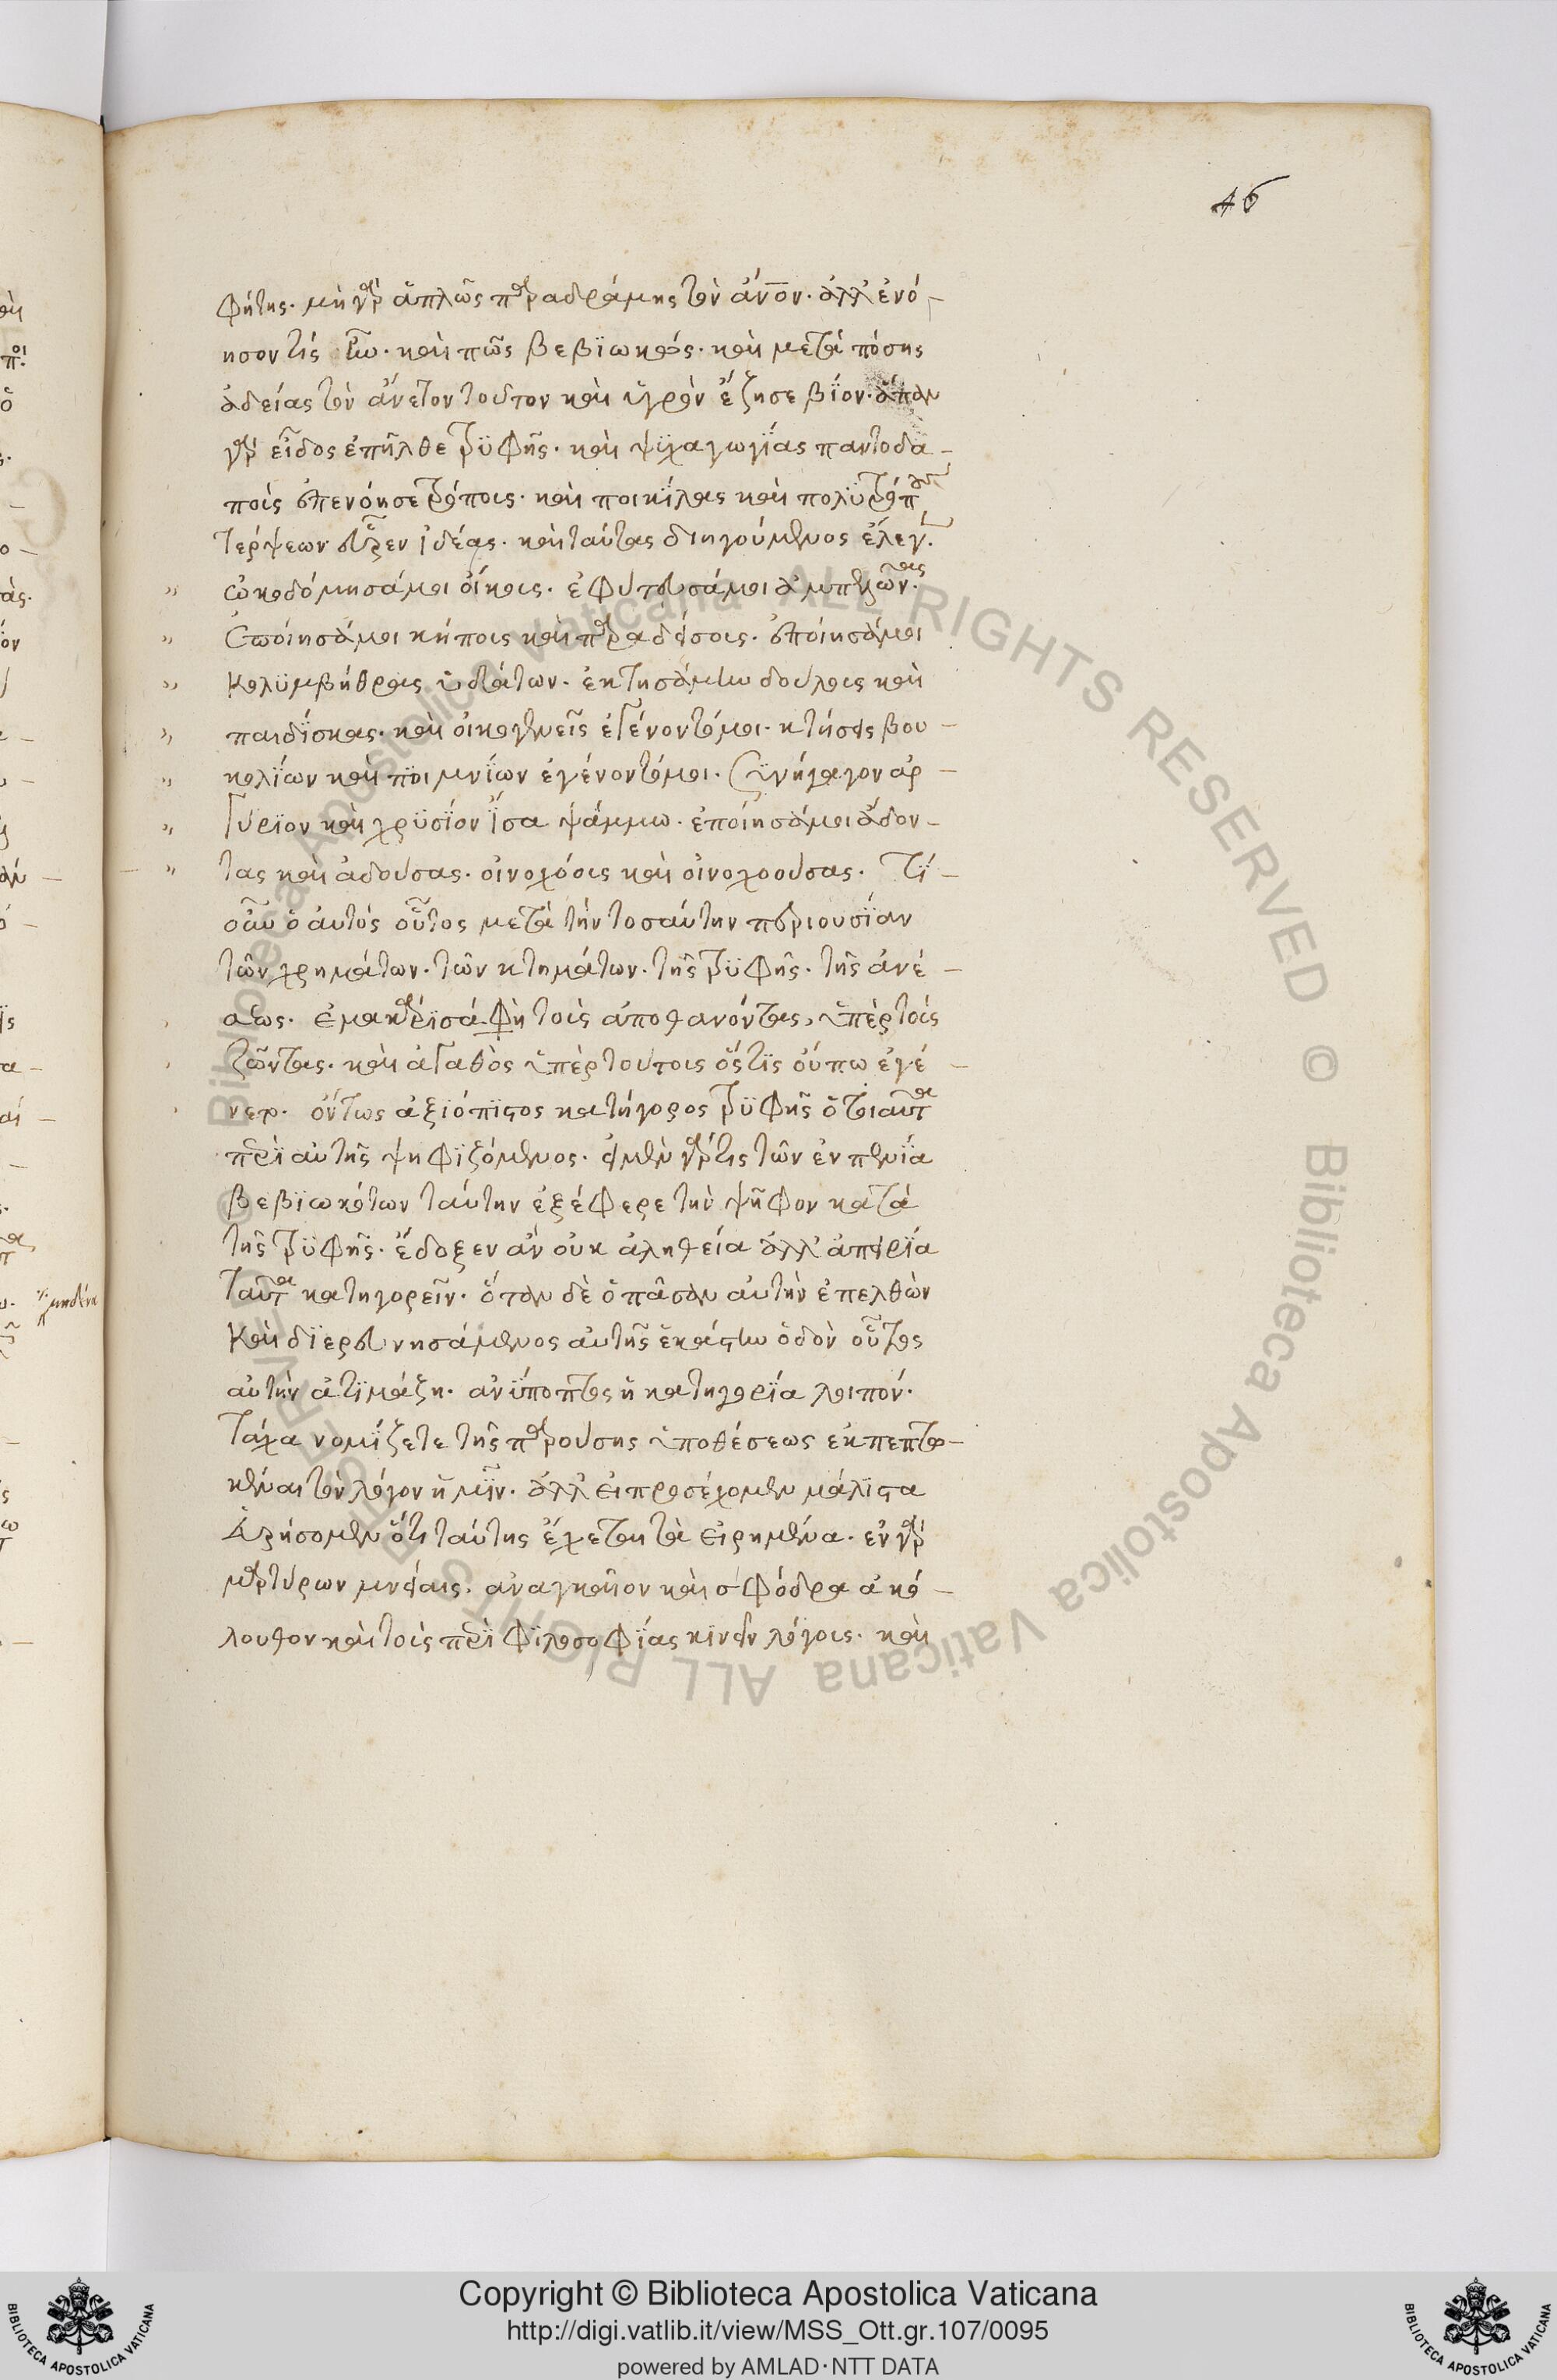 46
φήτης. μὴ γὰρ ἁπλῶς παραδράμης τὸν ἄνον. ἀλλ' ἐνό-
ησον τίς ἦν. καὶ πῶς βεβϊωκώς. καὶ μετὰ πόσης
ἀδείας τὸν ἄνετον τοῦτον καὶ ὑγρὸν ἔζησε βίον. ἅπαν
γὰρ εἶδος ἐπῆλθε τρϋφῆς. καὶ ψϋχαγωγΐας παντοδα-
ποὺς ἐπενόησε τρόπους. καὶ ποικΐλας καὶ πολϋτρόπους
τέρψεων εὗρεν ἰδέας. καὶ ταύτας διηγούμενος ἔλεγεν.
" ὠκοδόμησά μοι οἴκους. ἐφύτευσά μοι ἀμπελῶνας.
" ἐποίησά μοι κήπους καὶ παραδείσους. ἐποίησά μοι
" κολϋμβήθρας ὑδάτων. ἐκτησάμην δούλους καὶ
" παιδΐσκας. καὶ οἰκογενεῖς ἐγένοντό μοι. κτήσεις βου-
" κολΐων καὶ ποιμνΐων ἐγένοντό μοι. Συνήγαγον ἀρ-
" γύριον καὶ χρϋσΐον ἴσα ψάμμω. ἐποίησά μοι ἄδον-
" τας καὶ ἀδούσας. οἰνοχόους καὶ οἰνοχοούσας. Τΐ
οὖν ὁ αὐτὸς οὗτος μετὰ τὴν τοσαύτην περιουσΐαν
τῶν χρημάτων. τῶν κτημάτων. τῆς τρϋφῆς. τῆς ἀνέ-
σεως. ἐμακάρϊσά φη τοὺς ἀποθανόντας, ὑπὲρ τοὺς
ζῶντας. καὶ ἀγαθὸς ὑπὲρ τούτους ὅστϊς οὔπω ἐγέ-
νετο. ὄντως ἀξϊόπϊστος κατήγορος τρϋφῆς ὁ τοιαῦτα
περὶ αὐτῆς ψηφϊζόμενος. εἰ μὲν γάρ τις τῶν ἐν πενΐα
βεβϊωκότων ταύτην ἐξέφερε τὴν ψῆφον κατὰ
τῆς τρϋφῆς. ἔδοξεν ἂν οὐκ ἀληθεία ἀλλ' ἀπειρΐα
ταῦτα κατηγορεῖν. ὅταν δὲ ὁ πᾶσαν αὐτὴν ἐπελθὼν
καὶ δϊερευνησάμενος αὐτῆς ἑκάστην ὁδὸν οὗτος
αὐτὴν ἀτϊμάζη. ἀνΰποπτος ἡ κατηγορΐα λοιπόν.
Τάχα νομΐζετε τῆς παρούσης ὑποθέσεως ἐκπεπτω-
κέναι τὸν λόγον ἡμῖν. ἀλλ' εἰ προσέχομεν μάλϊστα
εὑρήσομεν ὅτι ταύτης ἔχεται τὰ εἰρημένα. ἐν γὰρ
μαρτύρων μνείαις. ἀναγκαῖον καὶ σφόδρα ἀκό-
λουθον καὶ τοὺς περὶ φϊλοσοφΐας κϊνεῖν λόγους. καὶ
© Biblioteca Apostolica Vaticana ALL RIGHTS RESERVED © Biblioteca Apostolica Vaticana ALL RIGHTS RESERVED
Copyright © Biblioteca Apostolica Vaticana
http://digi.vatlib.it/view/MSS_Ott.gr.107/0095
powered by AMLAD·NTT DATA
BIBLIOTECA APOSTOLICA VATICANA
BIBLIOTECA APOSTOLICA VATICANA